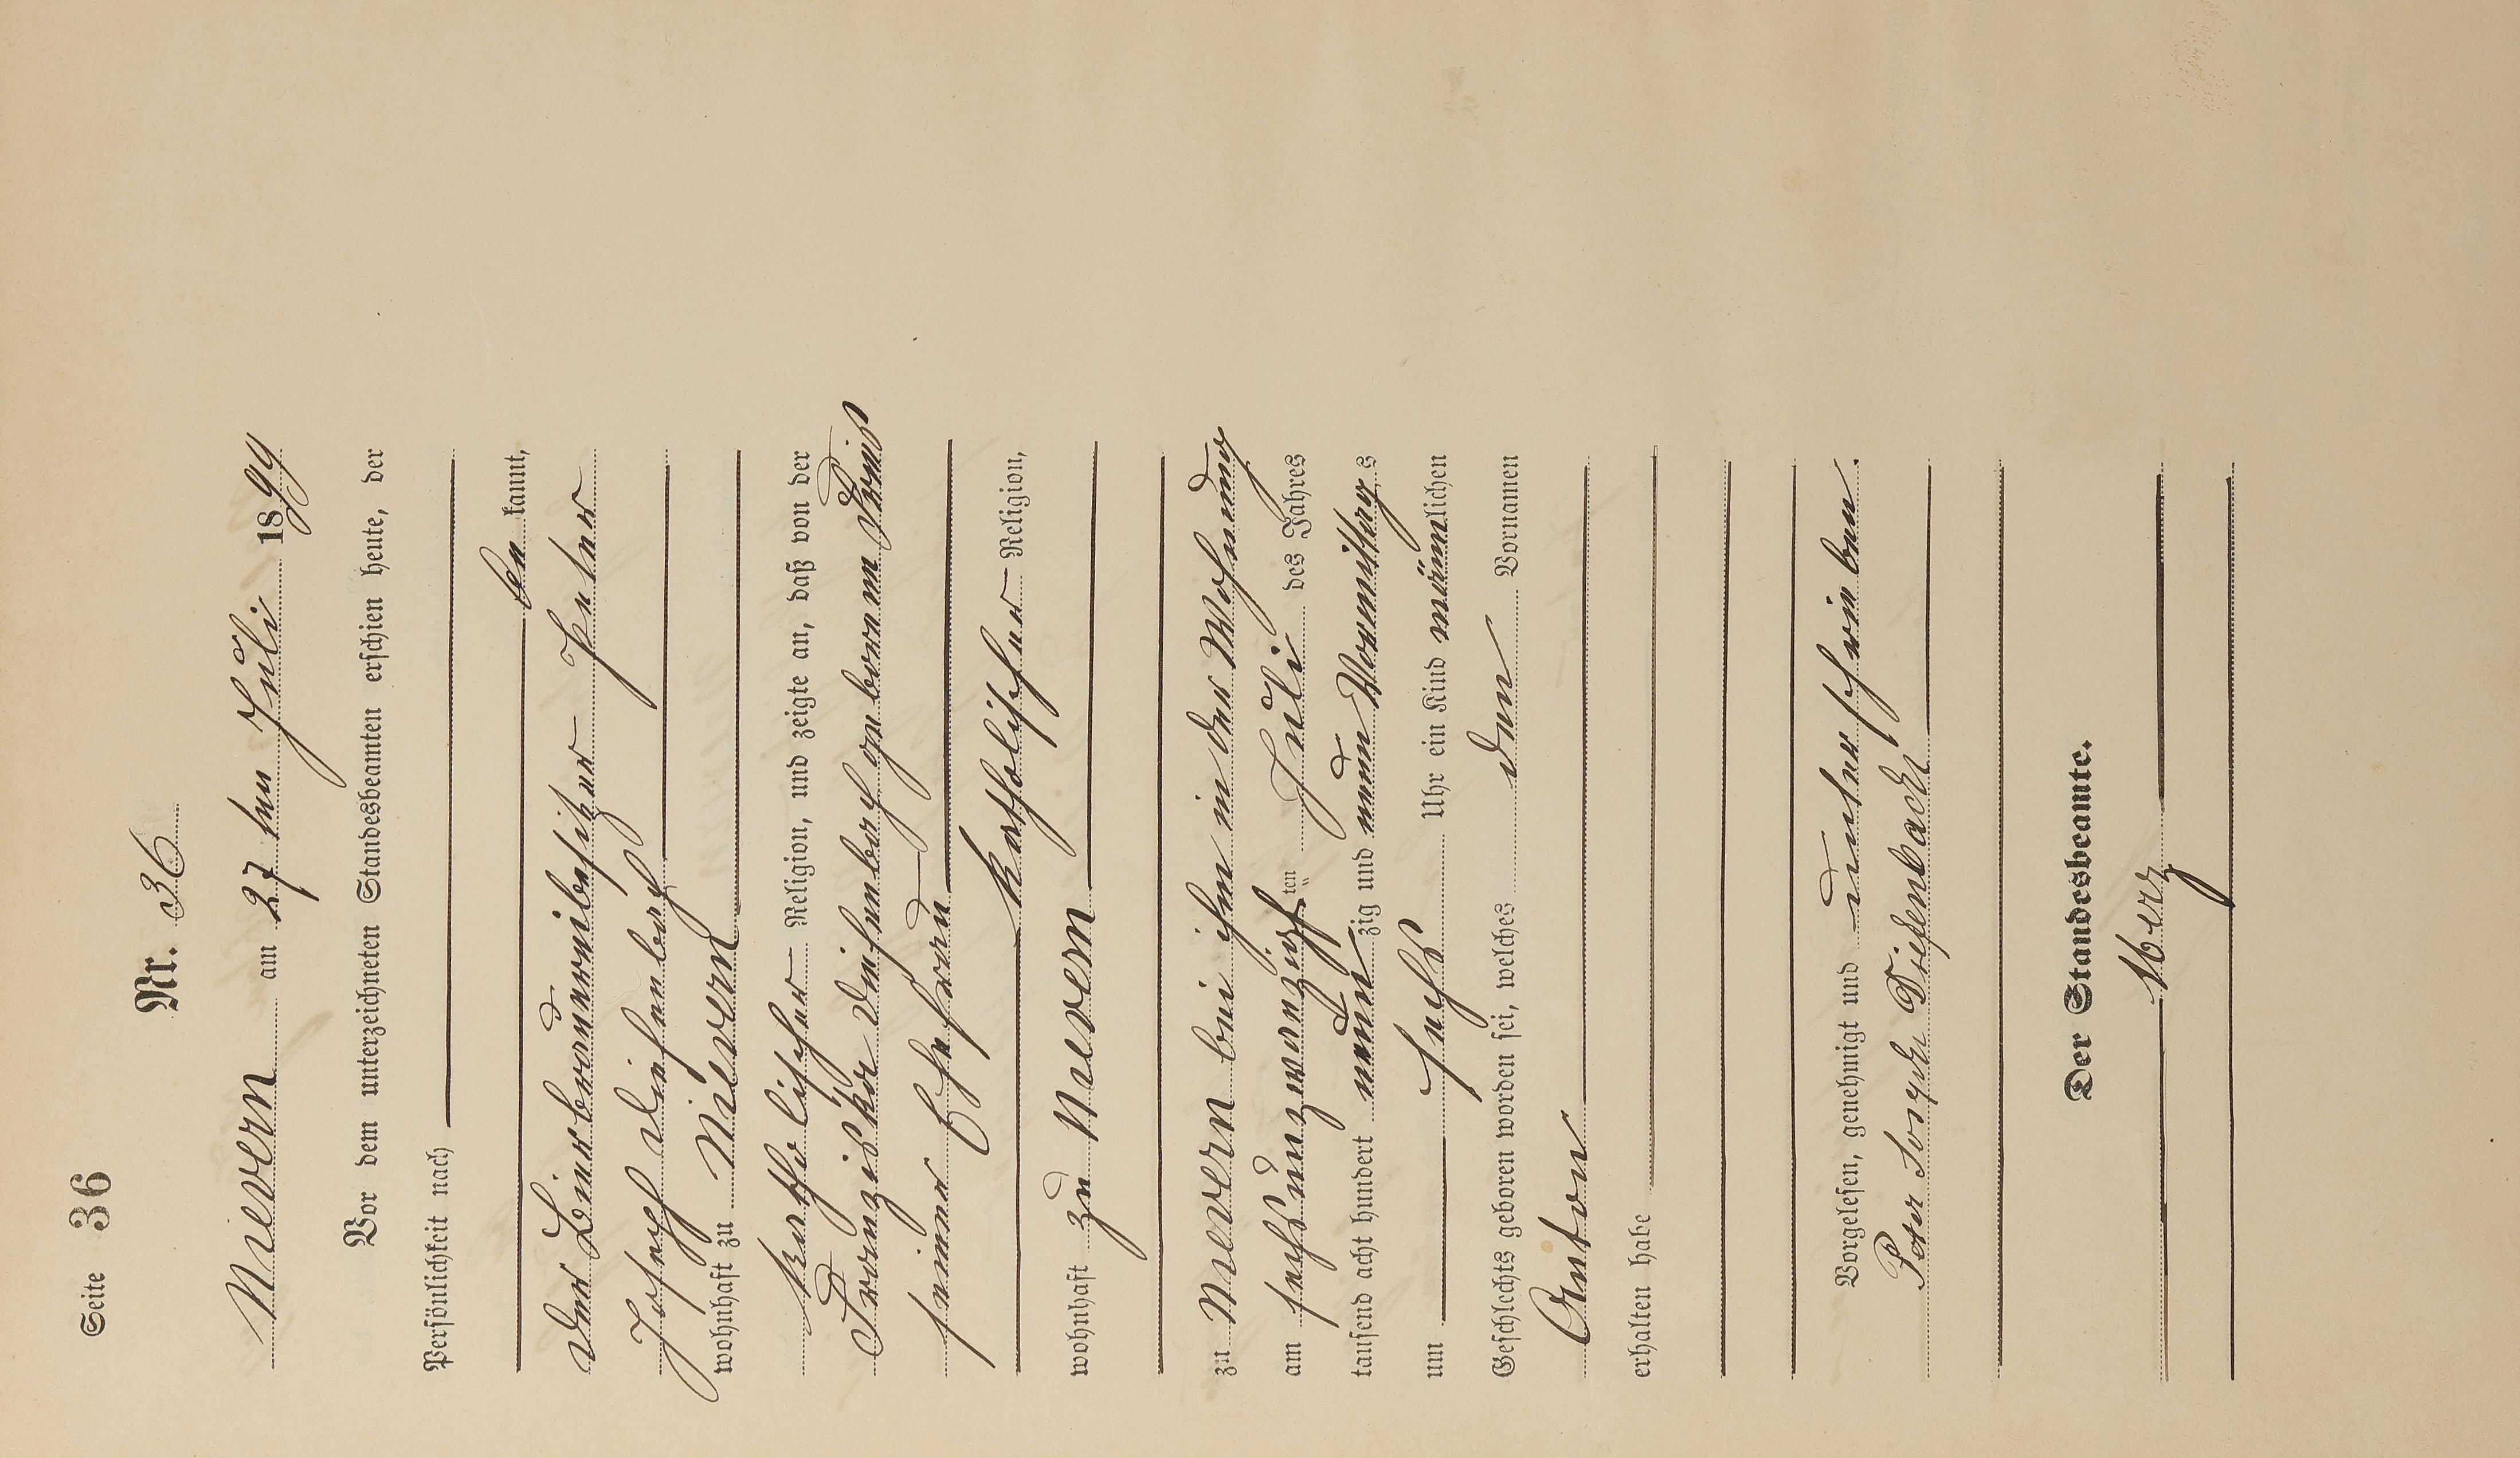 Seite 36
Nr. 36
Nievern am 27 ten Juli 1899
Vor dem unterzeichneten Standesbeamten erschien heute, der
Persönlichkeit nach
be kannt,
der Bierbrauereibesitzer Peter
Joseph Diefenbach
wohnhaft zu Nievern
katholischer Religion, und zeigte an, daß von der
Franziska Diefenbach geborenen
seiner Ehefrau
katholischer Religion,
wohnhaft zu Nievern
zu Nievern bei ihm in der Wohnung
am sechsundzwanzigsten Juli des Jahres
tausend acht hundert neun zig und neun Vormittags
um sechs Uhr ein Kind männlichen
Geschlechts geboren worden sei, welches den Vornamen
Anton
erhalten habe
Vorgelesen, genehmigt und unterschrieben
Peter Joseph Diefenbach
Der Standesbeamte.